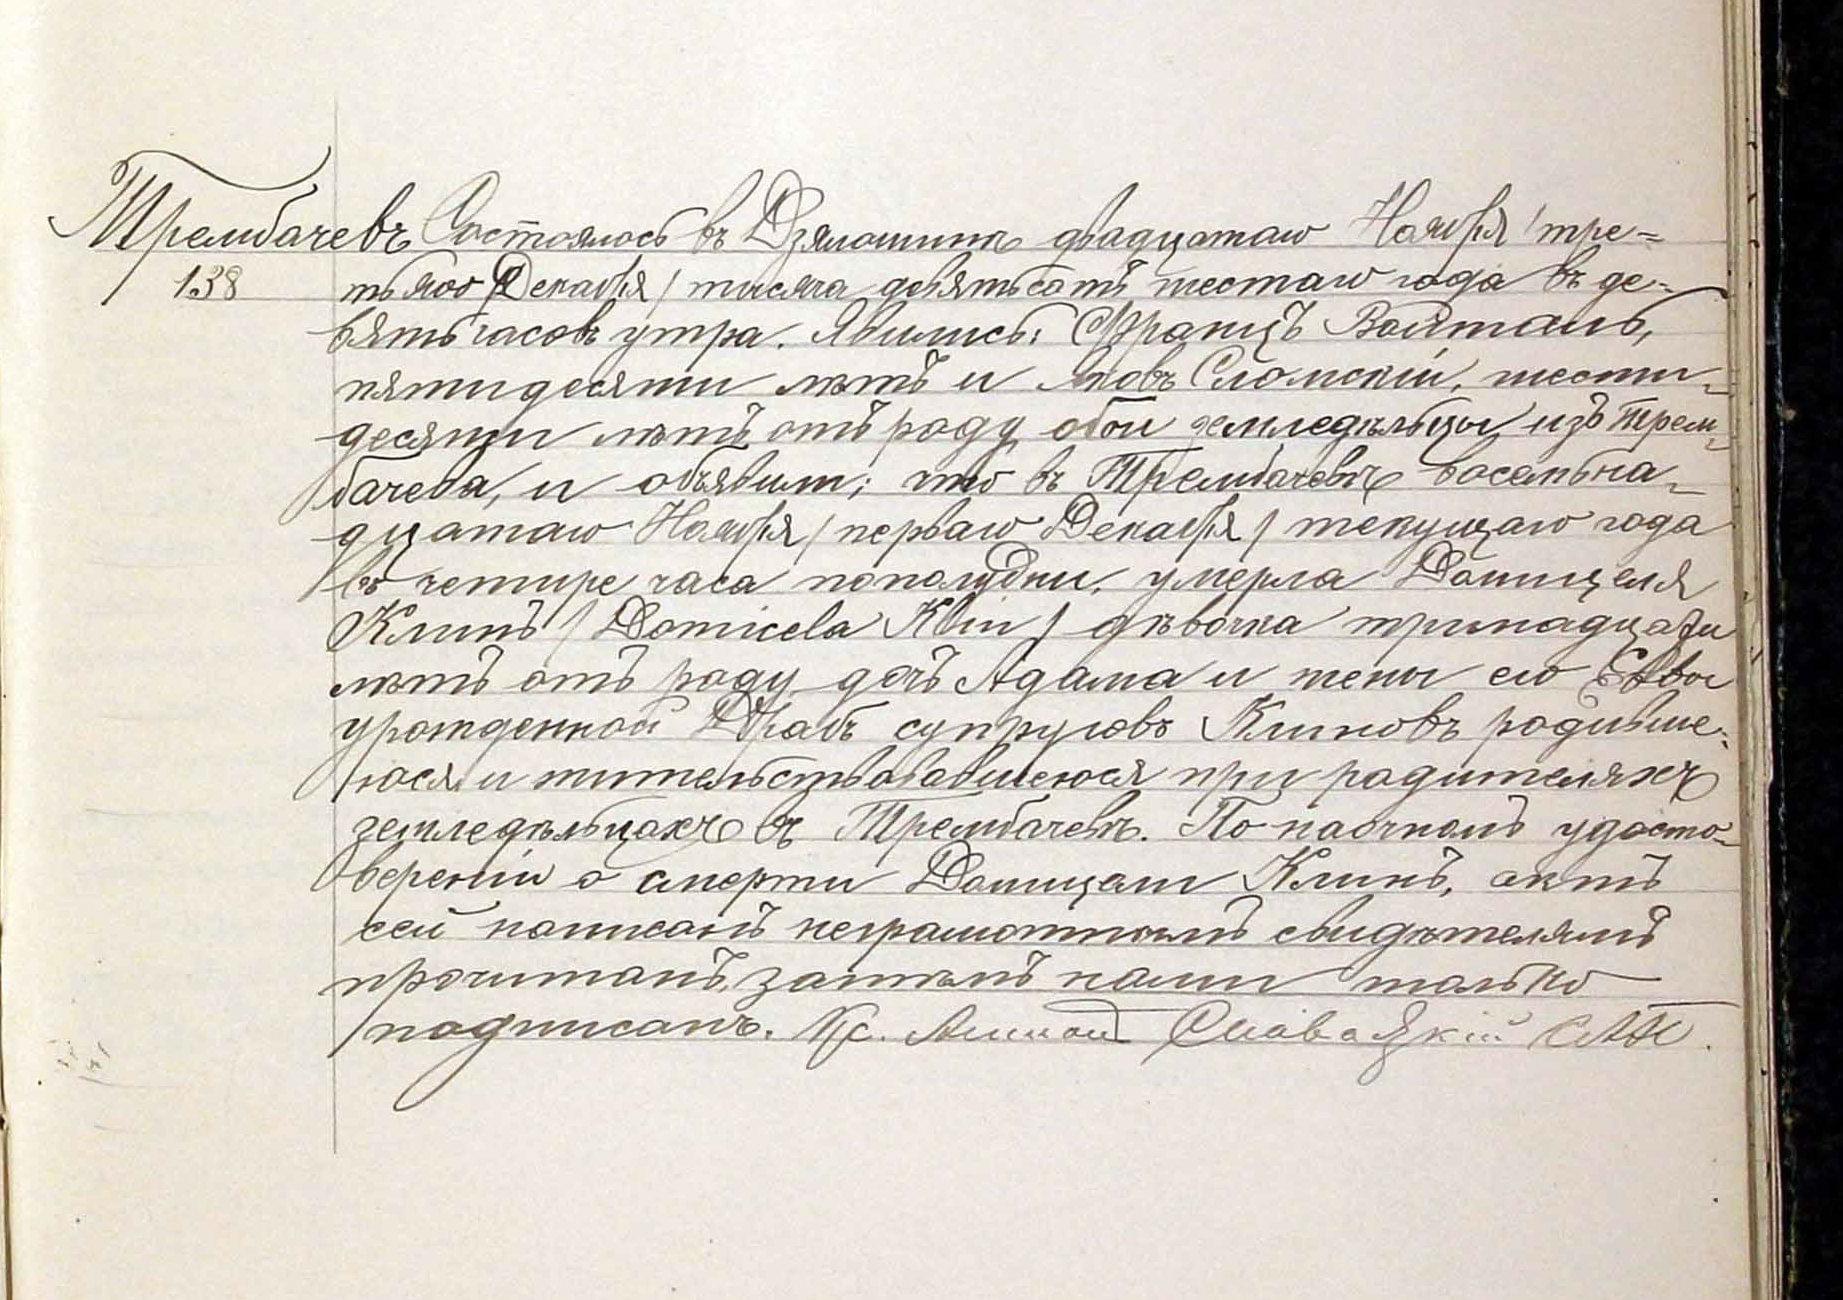 Трембачевъ Состоялось въ Дзялошинѣ двадцатаго Ноября /тре=
138 тьяго Декабря/ тысяча девятьсотъ шестаго года въ де-
вять часовъ утра. Явились: Францъ Войталь,
пятидесяти лѣтъ и Яковъ Сломскій, шести-
десяти лѣтъ отъ роду обои земледѣльцы изъ Трем-
бачева, и объявили; что въ Трембачевѣ восемьна-
дцатаго Ноября /перваго Декабря/ текущаго года
въ четыре часа пополудни, умерла Домицеля
Клинъ /Domicela Klin/ дѣвочка тринадцати
лѣтъ отъ роду дочь Адама и жены его Евы
урожденной Драбъ супруговъ Клиновъ родивше-
юся и жительствовавшеюся при родителяхъ
земледѣльцахъ въ Трембачевѣ. По наочномъ удосто-
вереніи о смерти Домицели Клинъ, актъ
сей написанъ неграмотнымъ свидѣтелямъ
прочитанъ, затѣмъ нами только
подписанъ. Кс.